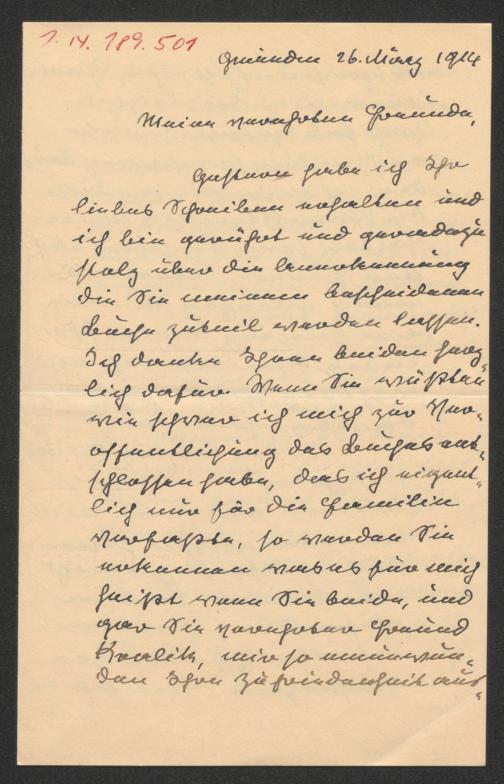 I. N. 189.501
Gmünden 26. März 1914
Meine verehrten Freunde,
Gestern habe ich Ihr
liebes Schreiben erhalten und
ich bin gerührt und geradezu
stolz über die Anerkennung
die Sie meinem bescheidenen
Buche zuteil werden lassen.
Ich danke Ihnen beiden herz-
lich dafür. Wenn Sie wüßten
wie schwer ich mich zur Ver-
öffentlichung des Buches ent-
schlossen habe, das ich eigent-
lich nur für die Familie
verfaßte, so werden Sie
erkennen was es für mich
heißt wenn Sie beide, und
gar Sie verehrter Freund
Kralik, mir so
den Ihre Zufriedenheit aus-